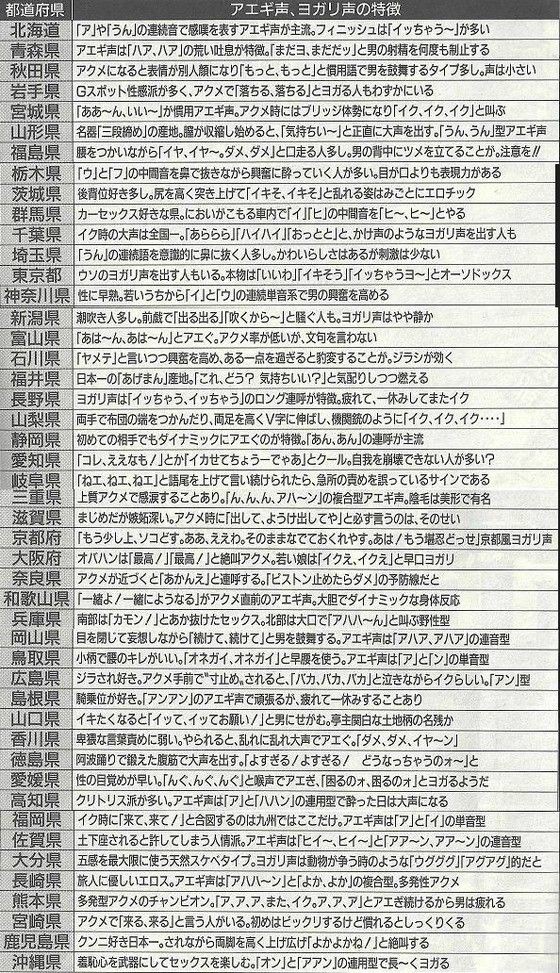 都道府県 アエギ声、ヨガリ声の特徴
北海道 「ア」や「うん」の連続音で感嘆を表すアエギ声が主流。フィニッシュは「イッちゃう~」が多い
青森県 アエギ声は「ハア、ハア」の荒い吐息が特徴。「まだヨ、まだだッ」と男の射精を何度も制止する
秋田県 アクメになると表情が別人顔になり「もっと、もっと」と慣用語で男を鼓舞するタイプ多し。声は小さい
岩手県 Gスポット性感派が多く、アクメで「落ちる、落ちる」とヨガる人もわずかにいる
宮城県 「ああ~ん、いい~」が慣用アエギ声。アクメ時にはブリッジ体勢になり「イク、イク、イク」と叫ぶ
山形県 名器「三段締め」の産地。膣が収縮し始めると、「気持ちい~」と正直に大声を出す。「うん、うん」型アエギ声
福島県 腰をつかいながら「イヤ、イヤ~。ダメ、ダメ」と口走る人多し。男の背中にツメを立てることが。注意を!!
栃木県 「ウ」と「フ」の中間音を鼻で抜きながら興奮に酔っていく人が多い。目が口よりも表現力がある
茨城県 後背位好き多し。尻を高く突き上げて「イキそ、イキそ」と乱れる姿はみごとにエロチック
群馬県 カーセックス好きな県。においがこもる車内で「イ」「ヒ」の中間音を「ヒ~、ヒ~」とやる
千葉県 イク時の大声は全国一。「あららら」「ハイハイ」「おっとと」と、かけ声のようなヨガリ声を出す人も
埼玉県 「うん」の連続語を意識的に鼻に抜く人多し。かわいらしさはあるが刺激は少ない
東京都 ウソのヨガリ声を出す人もいる。本物は「いいわ」「イキそう」「イッちゃうヨ~」とオーソドックス
神奈川県 性に早熟。若いうちから「イ」と「ウ」の連続単音系で男の興奮を高める
新潟県 潮吹き人多し。前戯で「出る出る」「吹くから~」と騒ぐ人も。ヨガリ声はやや静か
富山県 「あは~ん、あは~ん」とアエぐ。アクメ率が低いが、文句を言わない
石川県 「ヤメテ」と言いつつ興奮を高め、ある一点を過ぎると豹変することが。ジラシが効く
福井県 日本一の「あげまん」産地。「これ、どう? 気持ちいい?」と気配りしつつ燃える
長野県 ヨガリ声は「イっちゃう、イっちゃう」のロング連呼が特徴。疲れて、一休みしてまたイク
山梨県 両手で布団の端をつかんだり、両足を高くV字に伸ばし、機関銃のように「イク、イク、イク・・・・」
静岡県 初めての相手でもダイナミックにアエぐのが特徴。「あん、あん」の連呼が主流
愛知県 「コレ、ええなも!」とか「イカせてちょうーでゃあ」とクール。自我を崩壊できない人が多い?
岐阜県 「ねエ、ねエ、ねエ」と語尾を上げて言い続けられたら、急所の責めを誤っているサインである
三重県 上質アクメで感涙することあり。「ん、ん、ん、アハ~ン」の複合型アエギ声。陰毛は美形で有名
滋賀県 まじめだが嫉妬深い。アクメ時に「出して、ようけ出してや」と必ず言うのは、そのせい
京都府 「もう少し上、ソコどす。ああ、ええわ。そのままなでておくれやす。あは!もう堪忍どっせ」京都風ヨガリ声
大阪府 オバハンは「最高!」「最高!」と絶叫アクメ。若い娘は「イクえ、イクえ」と早口ヨガリ
奈良県 アクメが近づくと「あかんえ」と連呼する。「ピストン止めたらダメ」の予防線だと
和歌山県 「一緒よ!一緒にようなる」がアクメ直前のアエギ声。大胆でダイナミックな身体反応
兵庫県 南部は「カモン!」とあか抜けたセックス。北部は大口で「アハハ~ん」と叫ぶ野性型
岡山県 目を閉じて妄想しながら「続けて、続けて」と男を鼓舞する。アエギ声は「アハア、アハア」の連音型
鳥取県 小柄で腰のキレがいい。「オネガイ、オネガイ」と早腰を使う。アエギ声は「ア」と「ン」の単音型
広島県 ジラされ好き。アクメ手前で"寸止め。されると、「バカ、バカ、バカ」と泣きながらイクらしい。「アン」型
島根県 騎乗位が好き。「アンアン」のアエギ声で頑張るが、疲れて一休みすることあり
山口県 イキたくなると「イッて、イッてお願い!」と男にせがむ。亭主関白な土地柄の名残か
香川県 卑猥な言葉責めに弱い。やられると、乱れに乱れ大声でアエぐ。「ダメ、ダメ、イヤ~ン」
徳島県 阿波踊りで鍛えた腹筋で大声を出す。「よすぎる!よすぎる! どうなっちゃうのォ~」と
愛媛県 性の目覚めが早い。「んぐ、んぐ、んぐ」と喉声でアエぎ、「困るのォ、困るのォ」とヨガるようだ
高知県 クリトリス派が多い。アエギ声は「ア」と「ハハン」の連用型で酔った日は大声になる
福岡県 イク時に「来て、来て!」と合図するのは九州ではここだけ。アエギ声は「ア」と「イ」の単音型
佐賀県 土下座されると許してしまう人情派。アエギ声は「ヒイ~、ヒイ~」と「アア~ン、アア~ン」の連音型
大分県 五感を最大限に使う天然スケベタイプ。ヨガリ声は動物が争う時のような「ウグググ」「アグアグ」的だと
長崎県 旅人に優しいエロス。アエギ声は「アハハ~ン」と「よか、よか」の複合型。多発性アクメ
熊本県 多発型アクメのチャンピオン。「ア、ア、ア、また、イク。ア、ア、ア」とアエぎ続けるから男は疲れる
宮崎県 アクメで「来る、来る」と言う人がいる。初めはビックリするけど慣れるとしっくりくる
鹿児島県 クンニ好き日本一。されながら両脚を高く上げ広げ「よかよかね!」と絶叫する
沖縄県 羞恥心を武器にしてセックスを楽しむ。「オン」と「アアン」の連用型で長~くヨガる